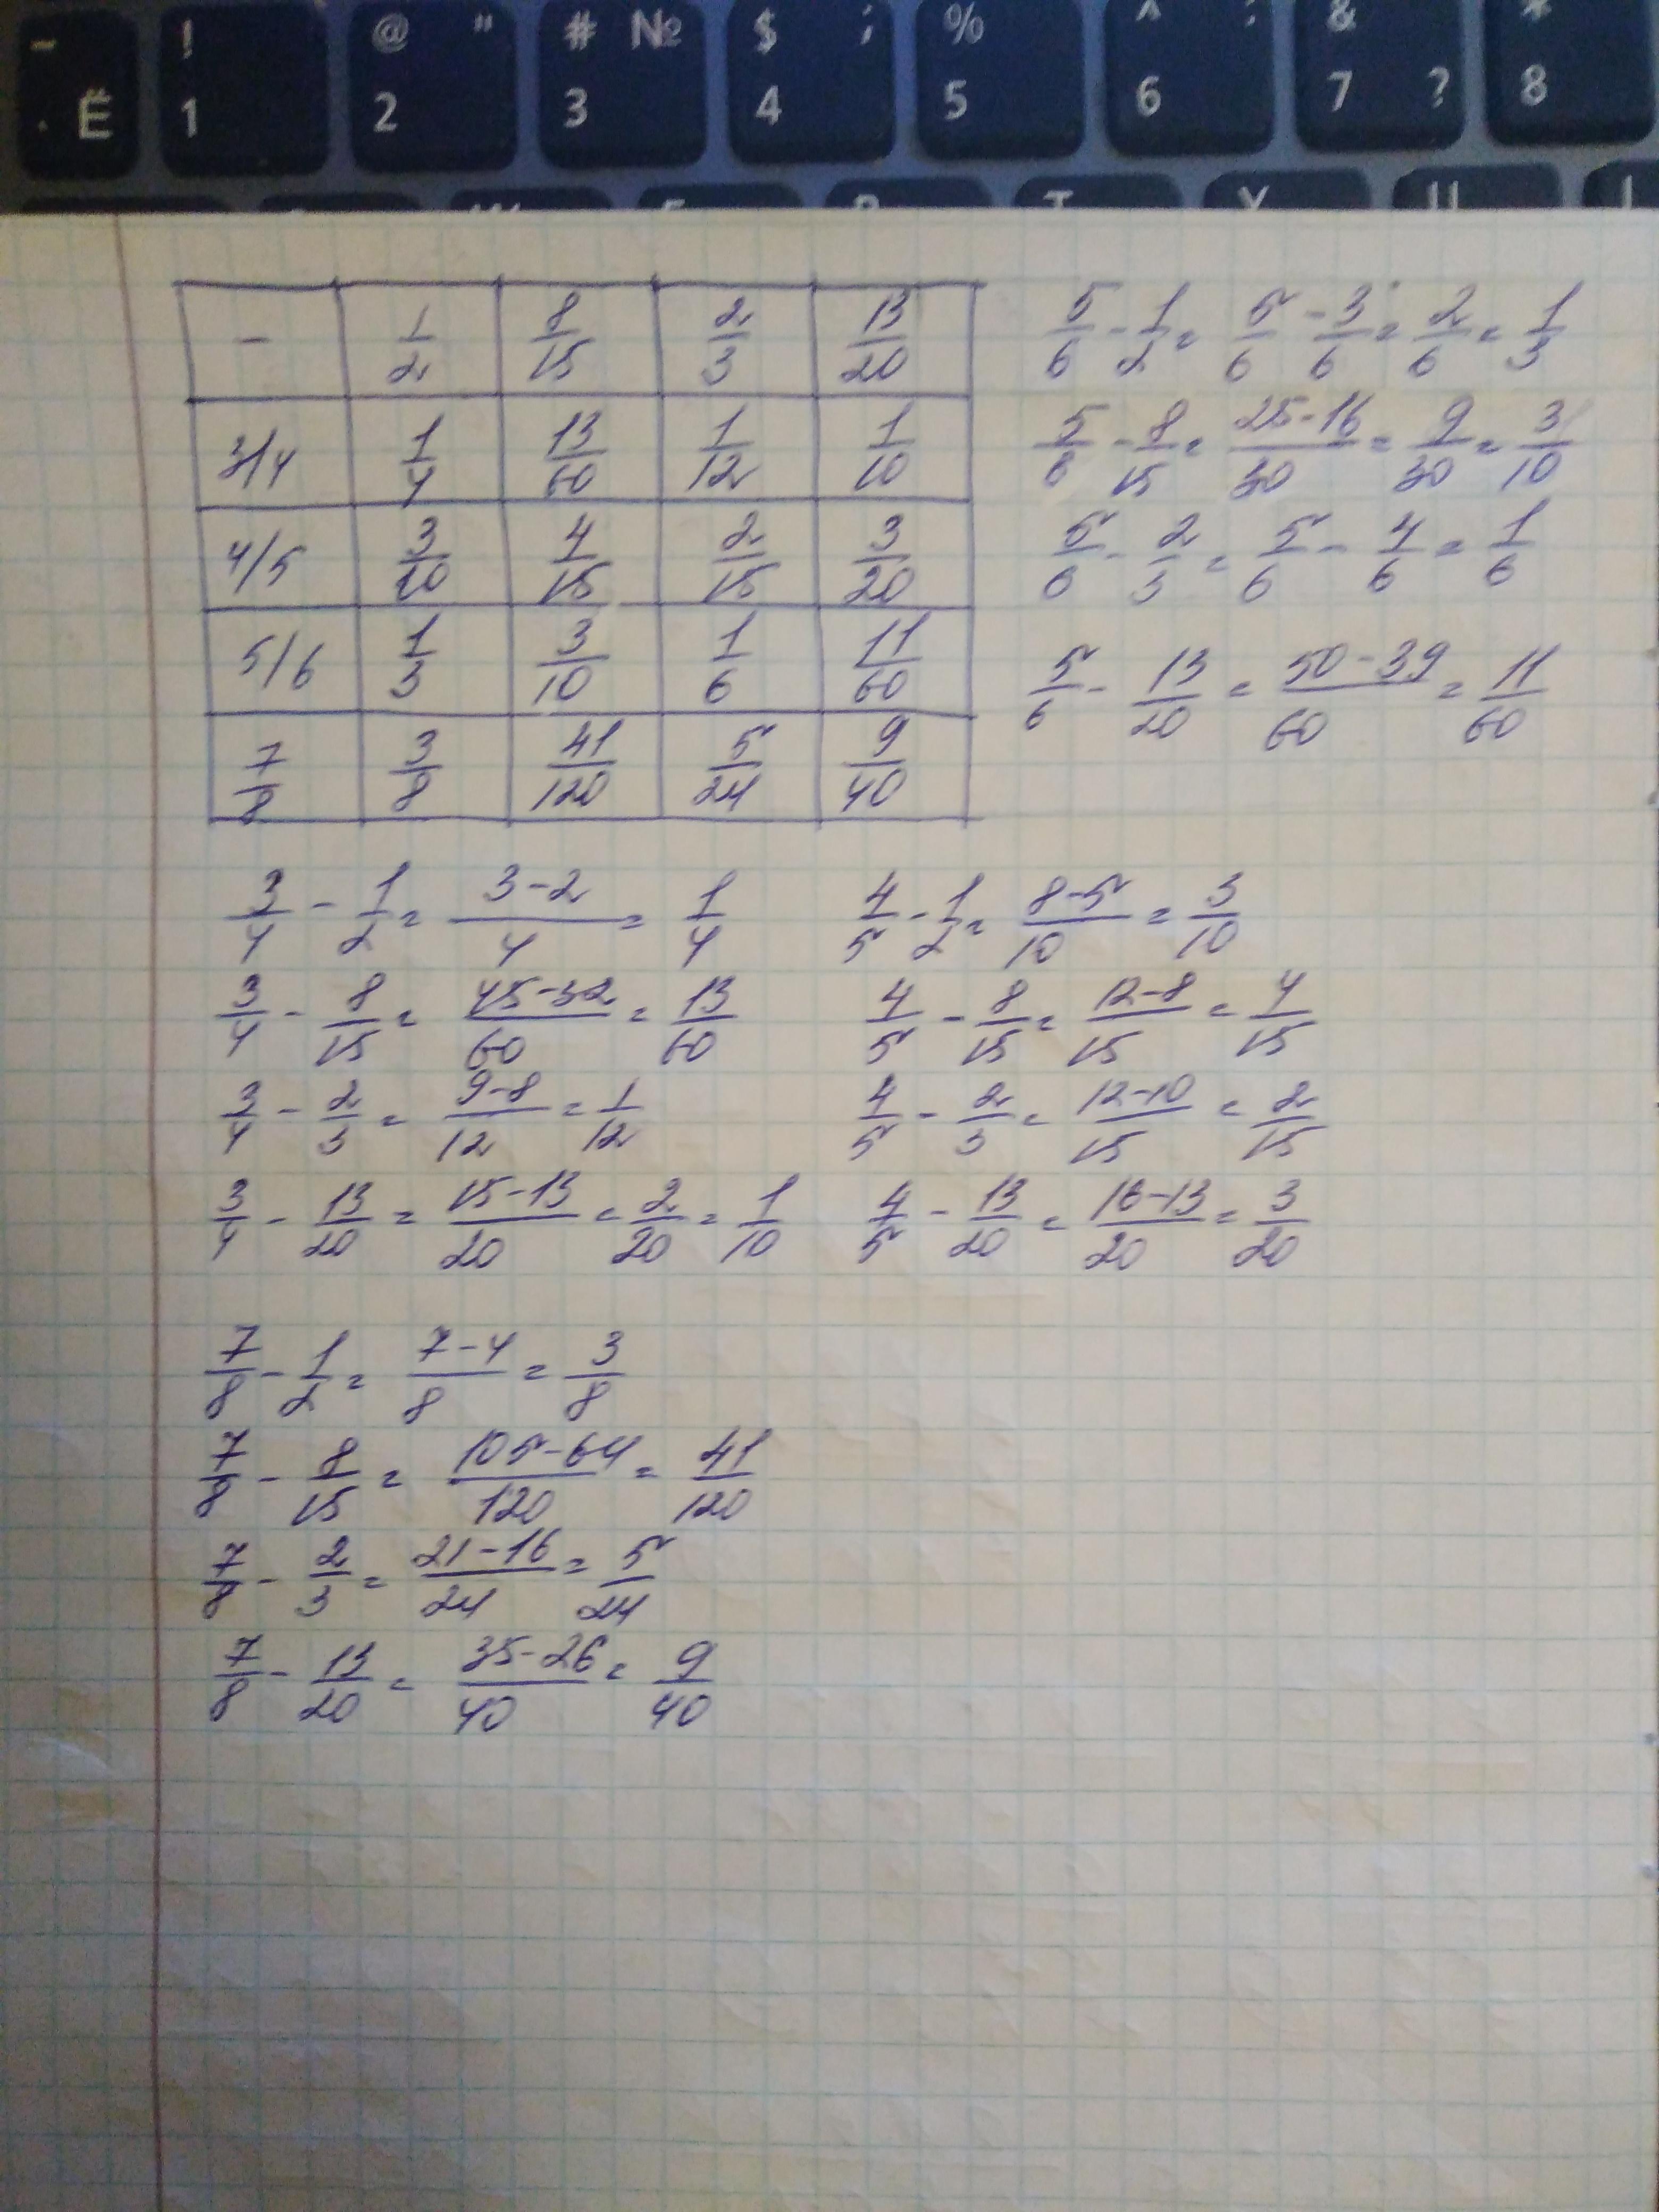 - ! @ " # № $ ; % ^ : & *
. Ё 1 2 3 4 5 6 7 ? 8
- 1/2 8/15 2/3 13/20
3/4 1/4 13/60 1/12 1/10
4/5 3/10 4/15 2/15 3/20
5/6 1/3 3/10 1/6 11/60
7/8 3/8 41/120 5/24 9/40
5/6 - 1/2 = 5/6 - 3/6 = 2/6 = 1/3
5/6 - 8/15 = 25-16/30 = 9/30 = 3/10
5/6 - 2/3 = 5/6 - 4/6 = 1/6
5/6 - 13/20 = 50-39/60 = 11/60
3/4 - 1/2 = 3-2/4 = 1/4
3/4 - 8/15 = 45-32/60 = 13/60
3/4 - 2/3 = 9-8/12 = 1/12
3/4 - 13/20 = 15-13/20 = 2/20 = 1/10
4/5 - 1/2 = 8-5/10 = 3/10
4/5 - 8/15 = 12-8/15 = 4/15
4/5 - 2/3 = 12-10/15 = 2/15
4/5 - 13/20 = 16-13/20 = 3/20
7/8 - 1/2 = 7-4/8 = 3/8
7/8 - 8/15 = 105-64/120 = 41/120
7/8 - 2/3 = 21-16/24 = 5/24
7/8 - 13/20 = 35-26/40 = 9/40